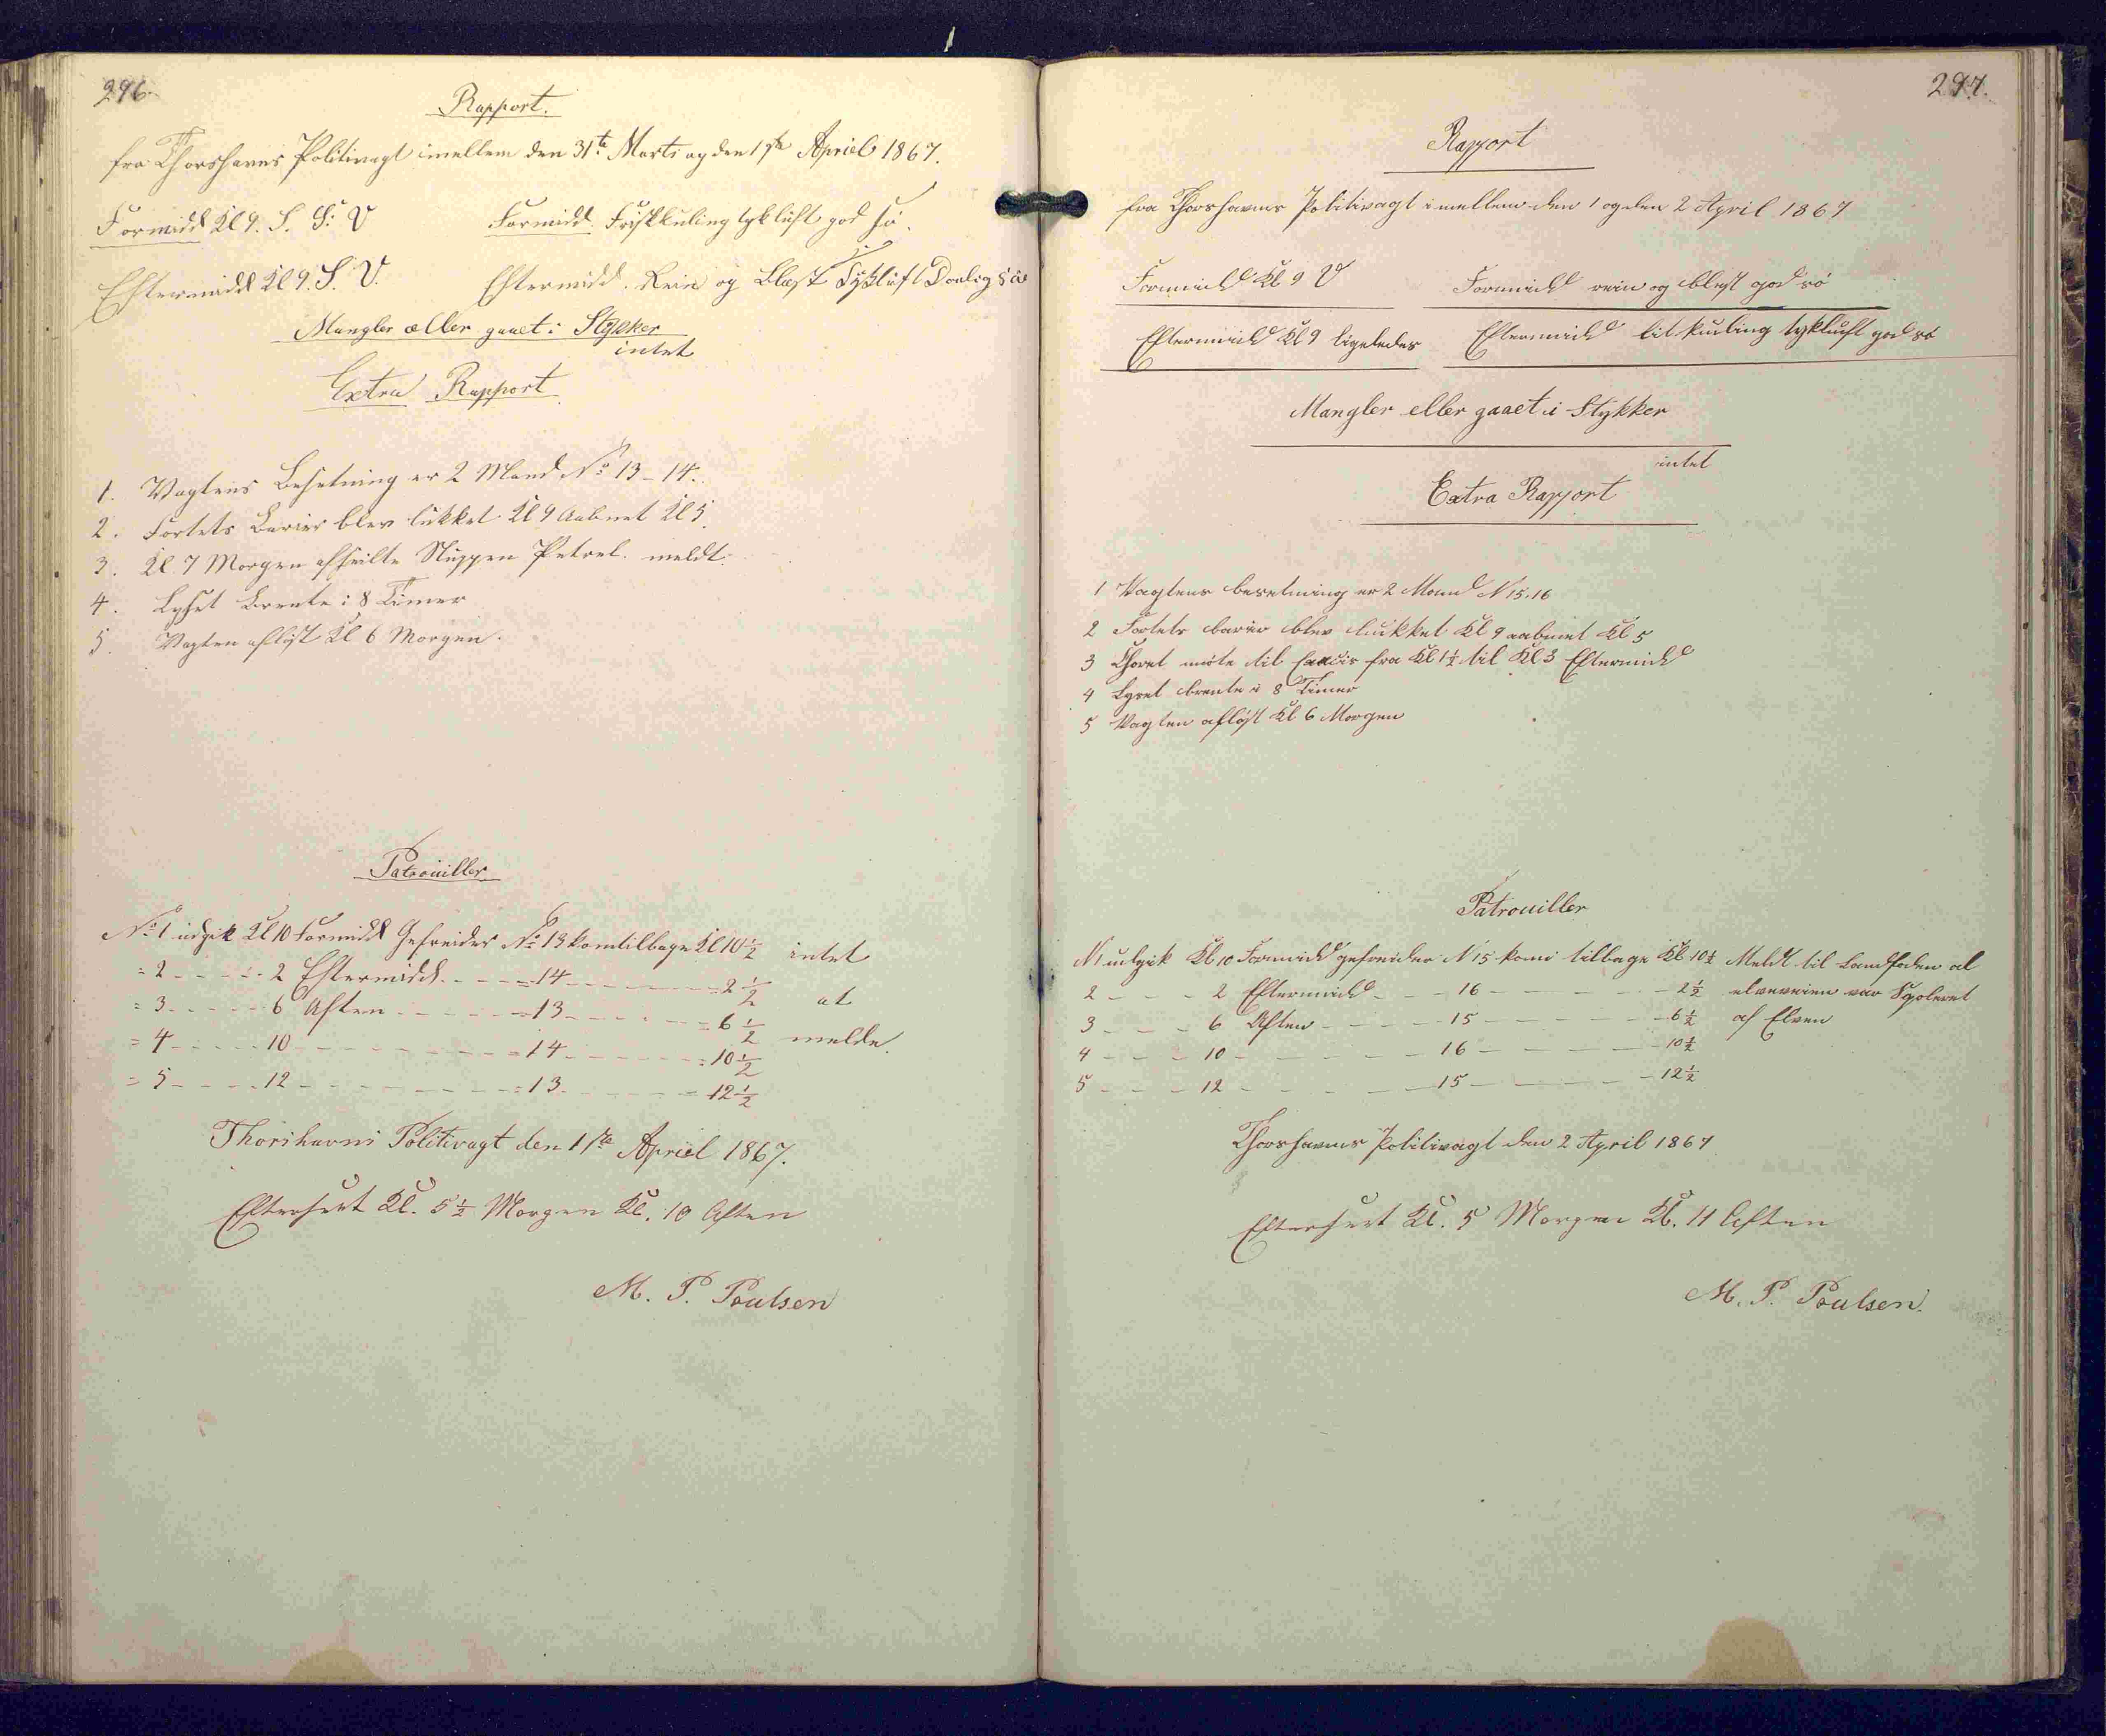 296.
Rapport.
fra Thorshavns Politivagt imellem den 31te Marts og den 1ste Apriel 1867.
Formidd Kl 9. S. S: V Formidd. Friskkuling tyk luft god sö.
Eftermidd Kl 9. S. V. Eftermidd. Rein og Blast Tyk luft Daalig sö
Mangler eller gaaet i Stykker
intet
Extra Rapport
1. Vagtens Besetning er 2 Mand No 13-14.
2. Fortets Barier blev lukket Kl 9 Aabnet Kl 5.
3. Kl. 7 Morgen afseilte Sluppen Petrel. meldt.
4. Lyset brente i 8 Timer
5. Vagten aflöst Kl 6 Morgen.
Patrouiller
No 1 udgik Kl 10 Formidd Gefreider No 13 kom tilbage Kl 10½ intet
= 2 - - - - 2 Eftermidd. - - - = 14 - - - - - = 2½
= 3 - - - - 6 Aften - - - - = 13 - - - - - = 6½ at
= 4 - - - - 10 - - - - - - = 14 - - - - - = 10½ melde.
= 5 - - - - 12 - - - - - - = 13 - - - - - = 12½
Thorshavns Politivagt den 1ste Apriel 1867.
Efterseet Kl. 5½ Morgen Kl. 10 Aften
M. P. Poulsen
297.
Rapport
fra Thorshavns Politivagt imellem den 1 og den 2 April 1867
Formidd Kl 9 V Formidd rein og blest god sö
Eftermidd Kl 9 ligeledes Eftermidd lit kuling tykluft god sö
Mangler eller gaaet i Stykker
intet
Extra Rapport
1 Vagtens besetning er 2 Mand N 15.16
2 Fortets barier blev lukket Kl 9 aabnet Kl 5
3 Choret möte til fra Kl 1½ til Kl 3 Eftermidd
4 Lyset brente i 8 Timer
5 Vagten aflöst Kl 6 Morgen
Patrouiller
N 1 udgik Kl 10 Formidd gefreider N 15 kom tilbage Kl 10½ Meldt til Landfoden at
2 - - - 2 Eftermidd - - - 16 - - - - - 2½ elveveien var Spoleret
3 - - - 6 Aften - - - - 15 - - - - - 6½ af Elven
4 - - - 10 - - - - - 16 - - - - - 10½
5 - - - 12 - - - - - 15 - - - - - 12½
Thorshavns Politivagt den 2 April 1867
Efterseet Kl. 5 Morgen Kl. 11 Aften
M. P. Poulsen.